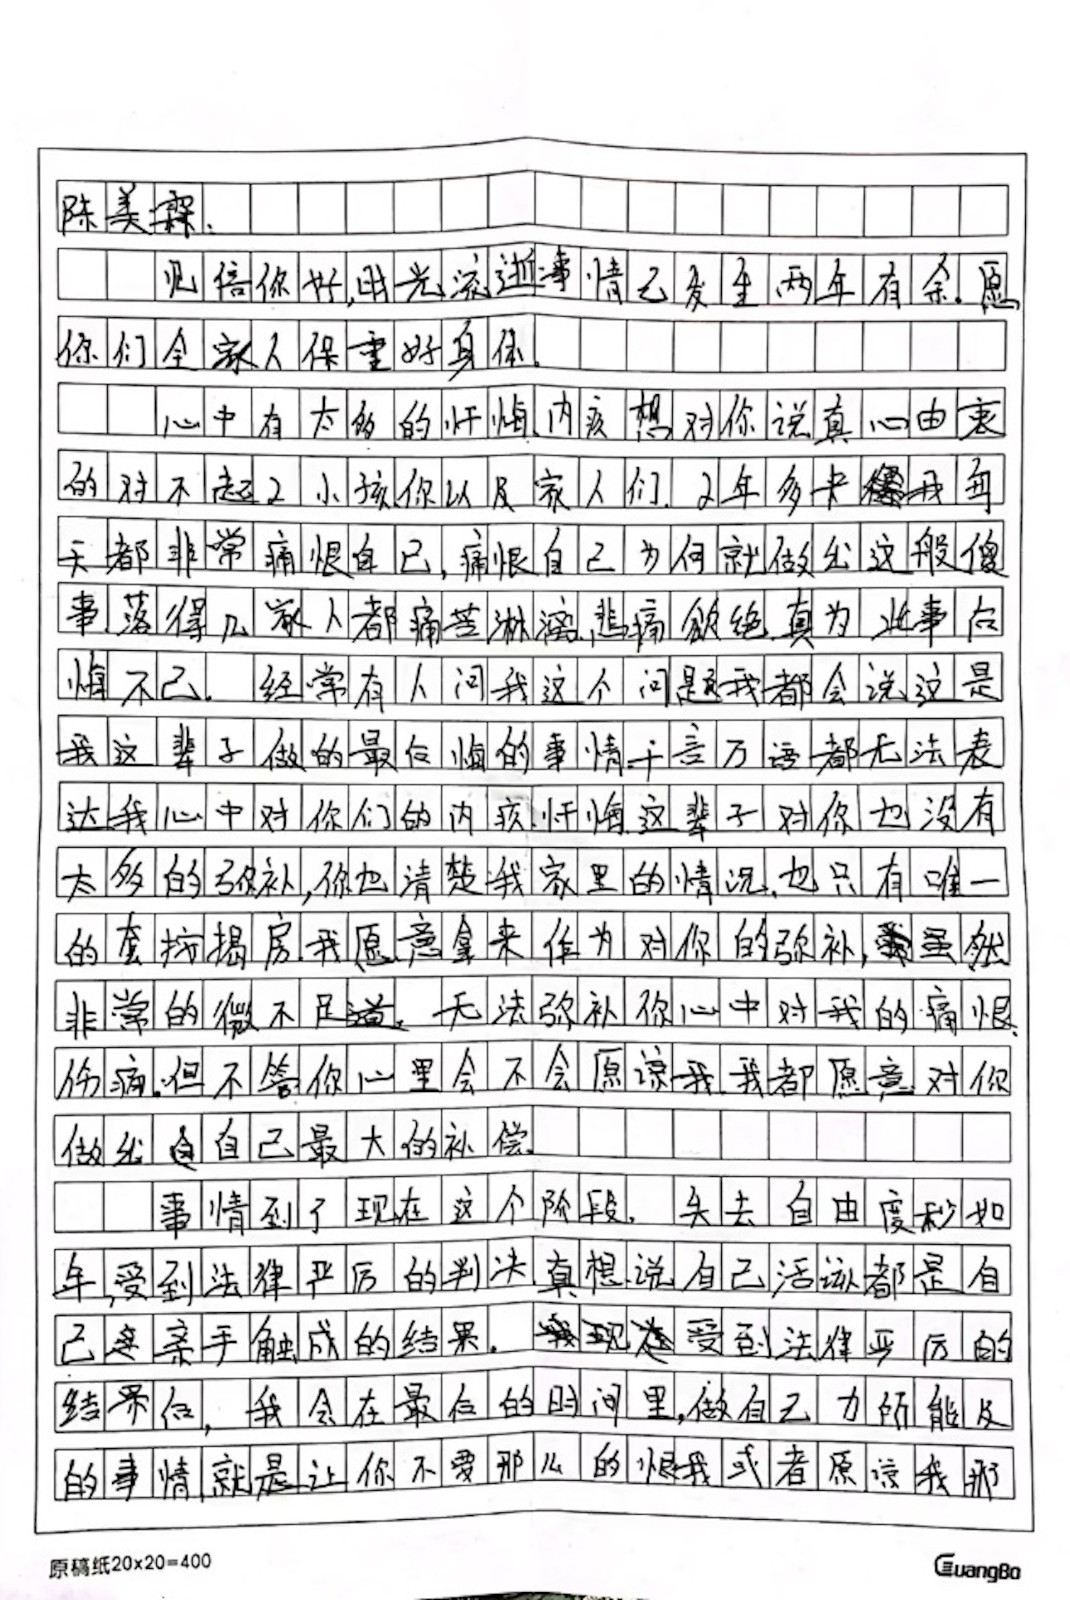 陈美霖:
见信你好,时光流逝事情已发生两年有余。愿
你们全家人保重好身体。
心中有太多的忏悔、内疚想对你说真心由衷
的对不起2小孩你以及家人们。2年多来我每
天都非常痛恨自己,痛恨自己为何就做出这般傻
事落得几家人都痛苦淋漓,悲痛欲绝真为此事后
悔不己。经常有人问我这个问题我都会说这是
我这辈子做的最后悔的事情千言万语都无法表
达我心中对你们的内疚忏悔这辈子对你也没有
太多的弥补,你也清楚我家里的情况,也只有唯一
的套按揭房我愿意拿来作为对你的弥补,虽然
非常的微不足道。无法弥补你心中对我的痛恨、
伤痛。但不管你心里会不会愿谅我我都愿意对你
做出自己最大的补偿。
事情到了现在这个阶段。失去自由度秒如
年,受到法律严厉的判决真想说自己活该都是自
己亲手触成的结果。受到法律严厉的
结果后,我会在最后的时间里,做自己力所能及
的事情,就是让你不要那么的恨我或者原谅我那
原稿纸20×20=400
GuangBo